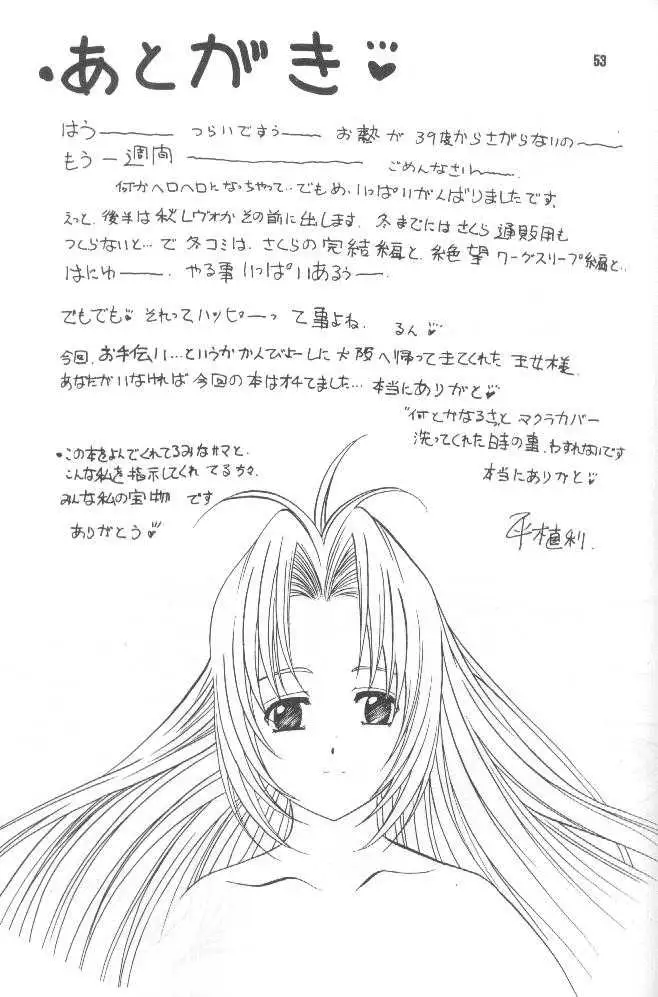 ・あとがき♥
53
はう――― つらいですぅ―― お熱が 39度からさがらないの――
もう一週間 ――――――― ごめんなさい―.
何かヘロヘロになっちゃって‥でもめいっぱいがんばりましたです。
えっと、後半は秋レヴォかその前に出します。冬までにはさくら通販用も
つくらないと…で冬コミは、さくらの完結編と、絶望 ワークスリープ編と‥
はにゅ――. やる事いっぱいあるぅ――.
でもでも♥ それってハッピーって事よね. るん♥
今回、お手伝い…というかかんびょーしに大阪へ帰って来てくれた 王女様.
あなたがいなければ今回の本はオチてました…本当にありがと♥
"何とかなるさ"と マクラカバー
洗ってくれた時の事、わすれないです
本当にありがと♥
・この本をよんでくれてるみなサマと、
こんな私を指示してくれてる方々
みんな私の宝物 です
ありがとう♥
平植利.